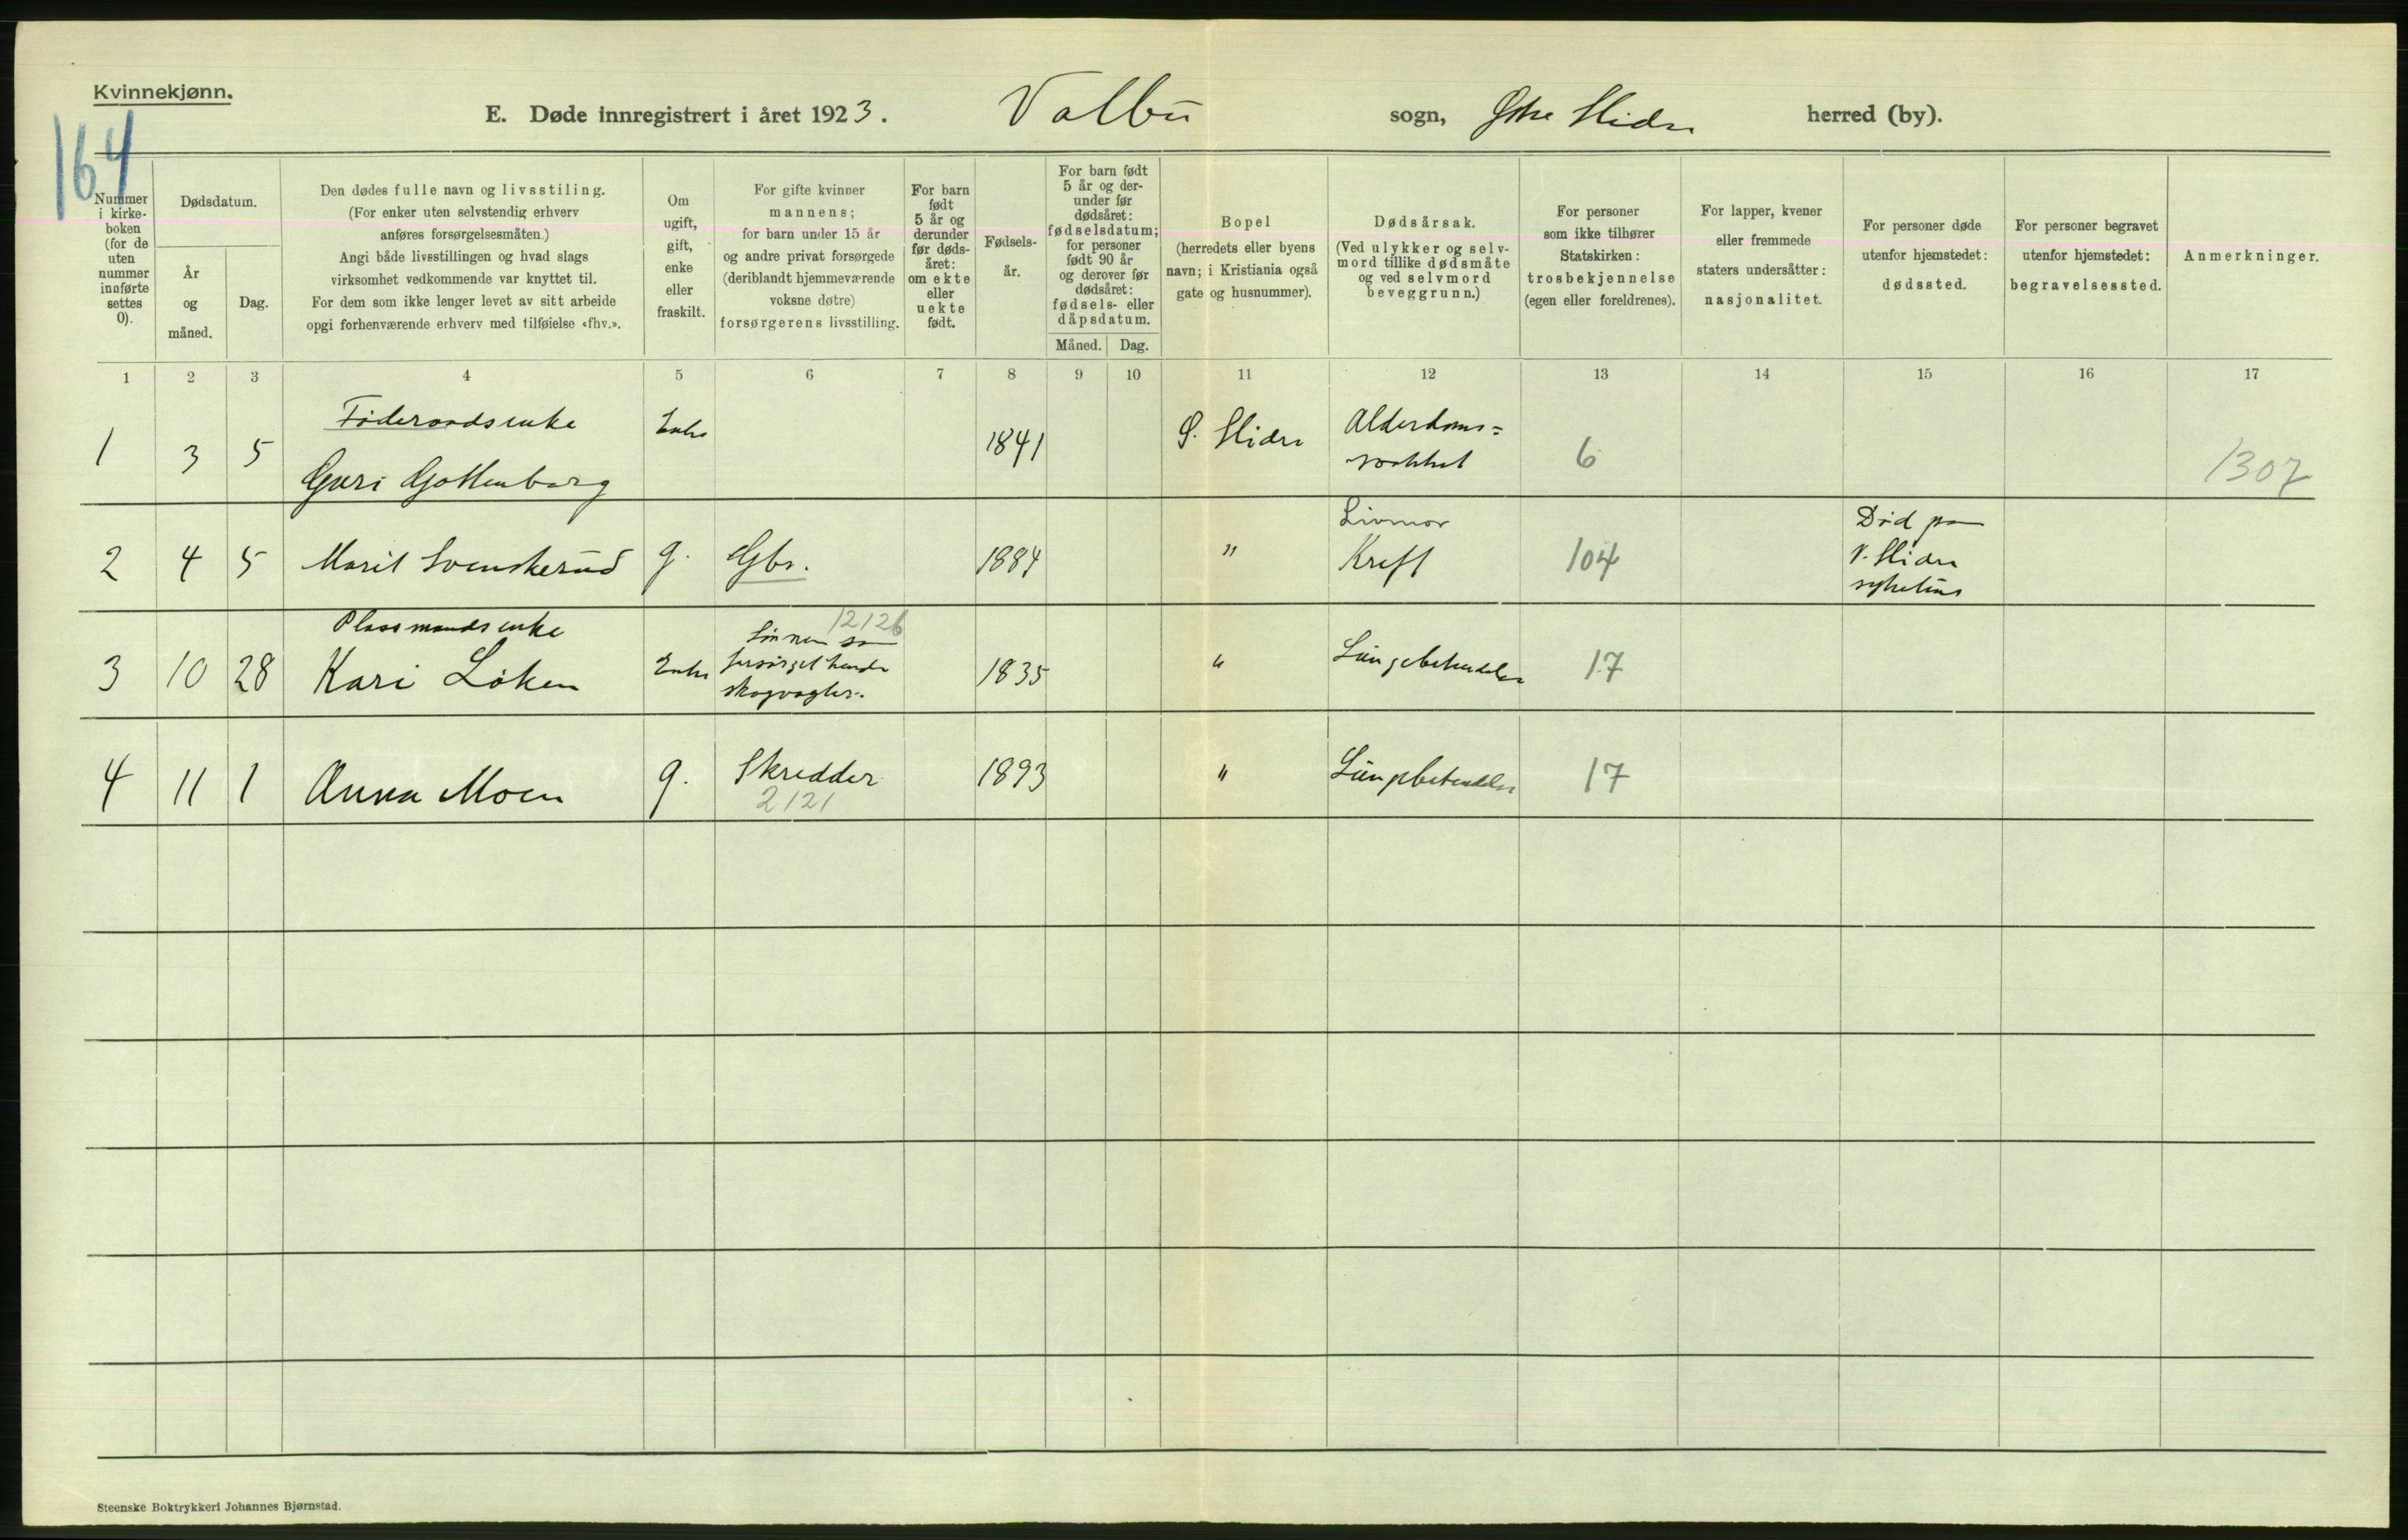 Kvinnekjønn.
164
E. Døde innregistrert i året 1923. Volbu sogn, Østre Slidre herred (by).
Nummer i kirkeboken (for de uten nummer innførte settes 0).
Dødsdatum.
År og måned.
Dag.
Den dødes fulle navn og livsstiling.
(For enker uten selvstendig erhverv
anføres forsørgelsesmåten.)
Angi både livsstillingen og hvad slags
virksomhet vedkommende var knyttet til.
For dem som ikke lenger levet av sitt arbeide
opgi forhenværende erhverv med tilføielse «fhv.».
Om
ugift,
gift,
enke
eller
fraskilt.
For gifte kvinner
mannens;
for barn under 15 år
og andre privat forsørgede
(deriblandt hjemmeværende
voksne døtre)
forsørgerens livsstilling.
For barn
født
5 år og
derunder
før døds-
året:
om ekte
eller
uekte
født.
Fødsels-
år.
For barn født
5 år og der-
under før
dødsåret:
fødselsdatum;
for personer
født 90 år
og derover før
dødsåret:
fødsels- eller
dåpsdatum.
Måned. Dag.
Bopel
(herredets eller byens
navn; i Kristiania også
gate og husnummer).
Dødsårsak.
(Ved ulykker og selv-
mord tillike dødsmåte
og ved selvmord
beveggrunn.)
For personer
som ikke tilhører
Statskirken:
trosbekjennelse
(egen eller foreldrenes).
For lapper, kvener
eller fremmede
staters undersåtter:
nasjonalitet.
For personer døde
utenfor hjemstedet:
dødssted.
For personer begravet
utenfor hjemstedet:
begravelsessted.
Anmerkninger.
1 2 3 4 5 6 7 8 9 10 11 12 13 14 15 16 17
Føderaadsenke
1 3 5 Guri Gottenborg Enke 1841 Ø. Slidre Alderdoms=
svakhet 6 1307
2 4 5 Marit Svenskerud g. Gbr. 1884 " Livmor
Kreft 104 Død paa
V. Slidre
sykehus
Plassmandsenke
3 10 28 Kari Løken Enke 12126
Sønnen som
forsørget hende
skogvogter. 1835 " Lungebetendelse 17
4 11 1 Anna Moen g. Skredder
2121 1893 " Lungebetendelse 17
Steenske Boktrykkeri Johannes Bjørnstad.